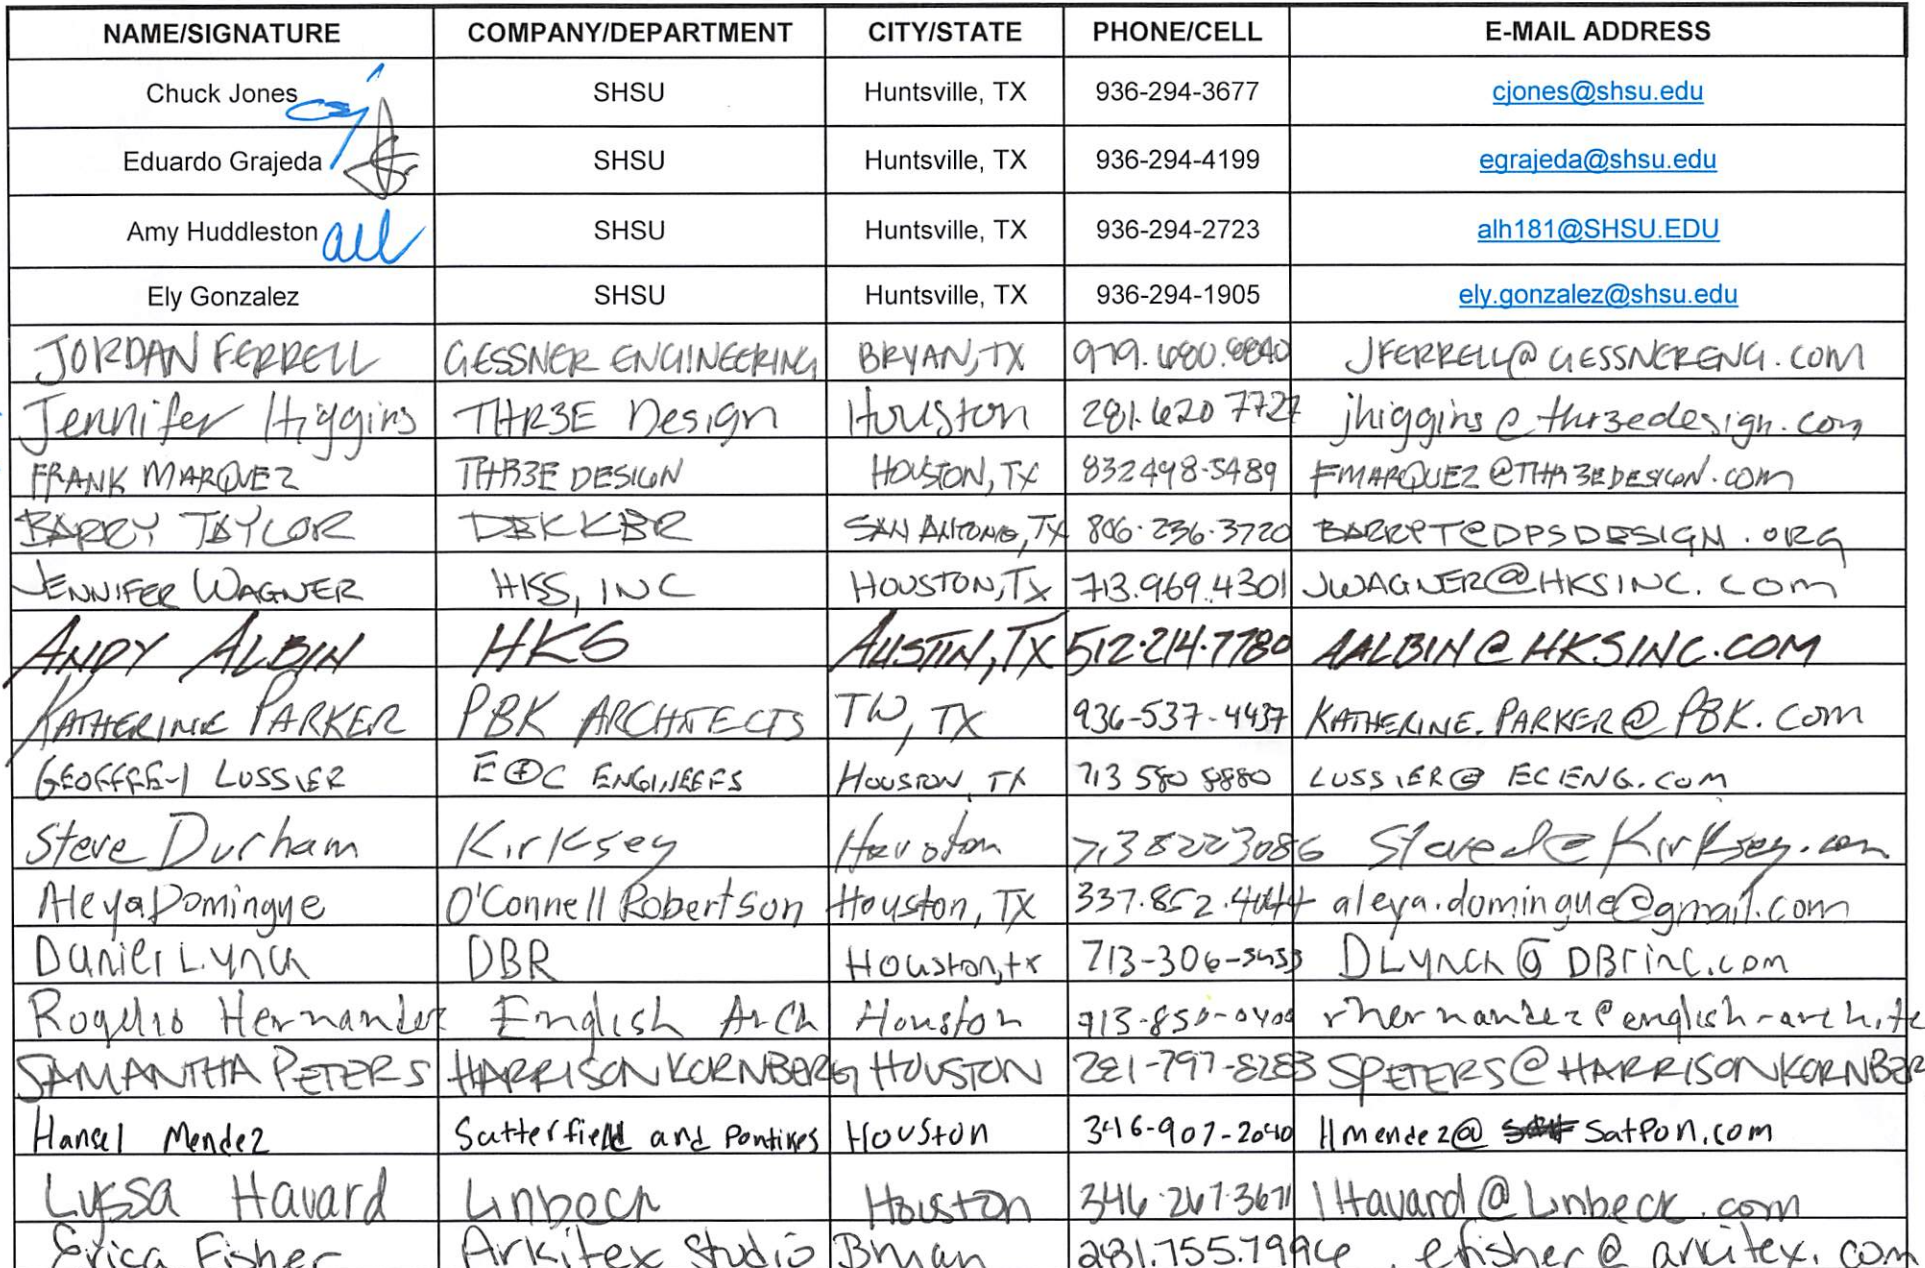 NAME/SIGNATURE COMPANY/DEPARTMENT CITY/STATE PHONE/CELL E-MAIL ADDRESS
Chuck Jones SHSU Huntsville, TX 936-294-3677 cjones@shsu.edu
Eduardo Grajeda SHSU Huntsville, TX 936-294-4199 egrajeda@shsu.edu
Amy Huddleston SHSU Huntsville, TX 936-294-2723 alh181@SHSU.EDU
Ely Gonzalez SHSU Huntsville, TX 936-294-1905 ely.gonzalez@shsu.edu
JORDAN FERRELL GESSNER ENGINEERING BRYAN, TX 979.680.8840 JFERRELL@GESSNERENG.COM
Jennifer Higgins THR3E Design Houston 281.620 7727 jhiggins@thr3edesign.com
FRANK MARQUEZ THR3E DESIGN HOUSTON, TX 832 498-5489 FMARQUEZ@THR3EDESIGN.COM
BARRY TAYLOR SAN ANTONIO, TX 806-236-3720 @DPSDESIGN.ORG
JENNIFER WAGNER HKS, INC HOUSTON, TX 713.969.4301 JWAGNER@HKSINC.COM
ANDY ALBIN HKS AUSTIN, TX 512-214-7780 AALBIN@HKSINC.COM
KATHERINE PARKER PBK ARCHITECTS TW, TX 936-537-4437 KATHERINE.PARKER@PBK.COM
GEOFFREY LUSSIER E&C ENGINEERS HOUSTON, TX 713 580 8880 LUSSIER@ECIENG.COM
Steve Durham Kirksey Houston 713 822 3086 Steved@Kirksey.com
Aleya Domingue O'Connell Robertson Houston, TX 337.852.4044 aleya.domingue@gmail.com
Daniel Lynch DBR Houston, tx 713-306-5453 DLynch@DBRinc.com
Rogelio Hernandez English Arch Houston 713-850-0400 rhernandez@english-archite
SAMANTHA PETERS HARRISONKORNBERG HOUSTON 281-797-8283 SPETERS@HARRISONKORNBER
Hansel Mendez Satterfield and Pontikes Houston 346-907-2040 Hmendez@ Satpon.com
Lyssa Havard Linbeck Houston 346-267-3671 lHavard@Linbeck.com
Erica Fisher Arkitex Studio Bryan 281.755.7994 efisher@arkitex.com